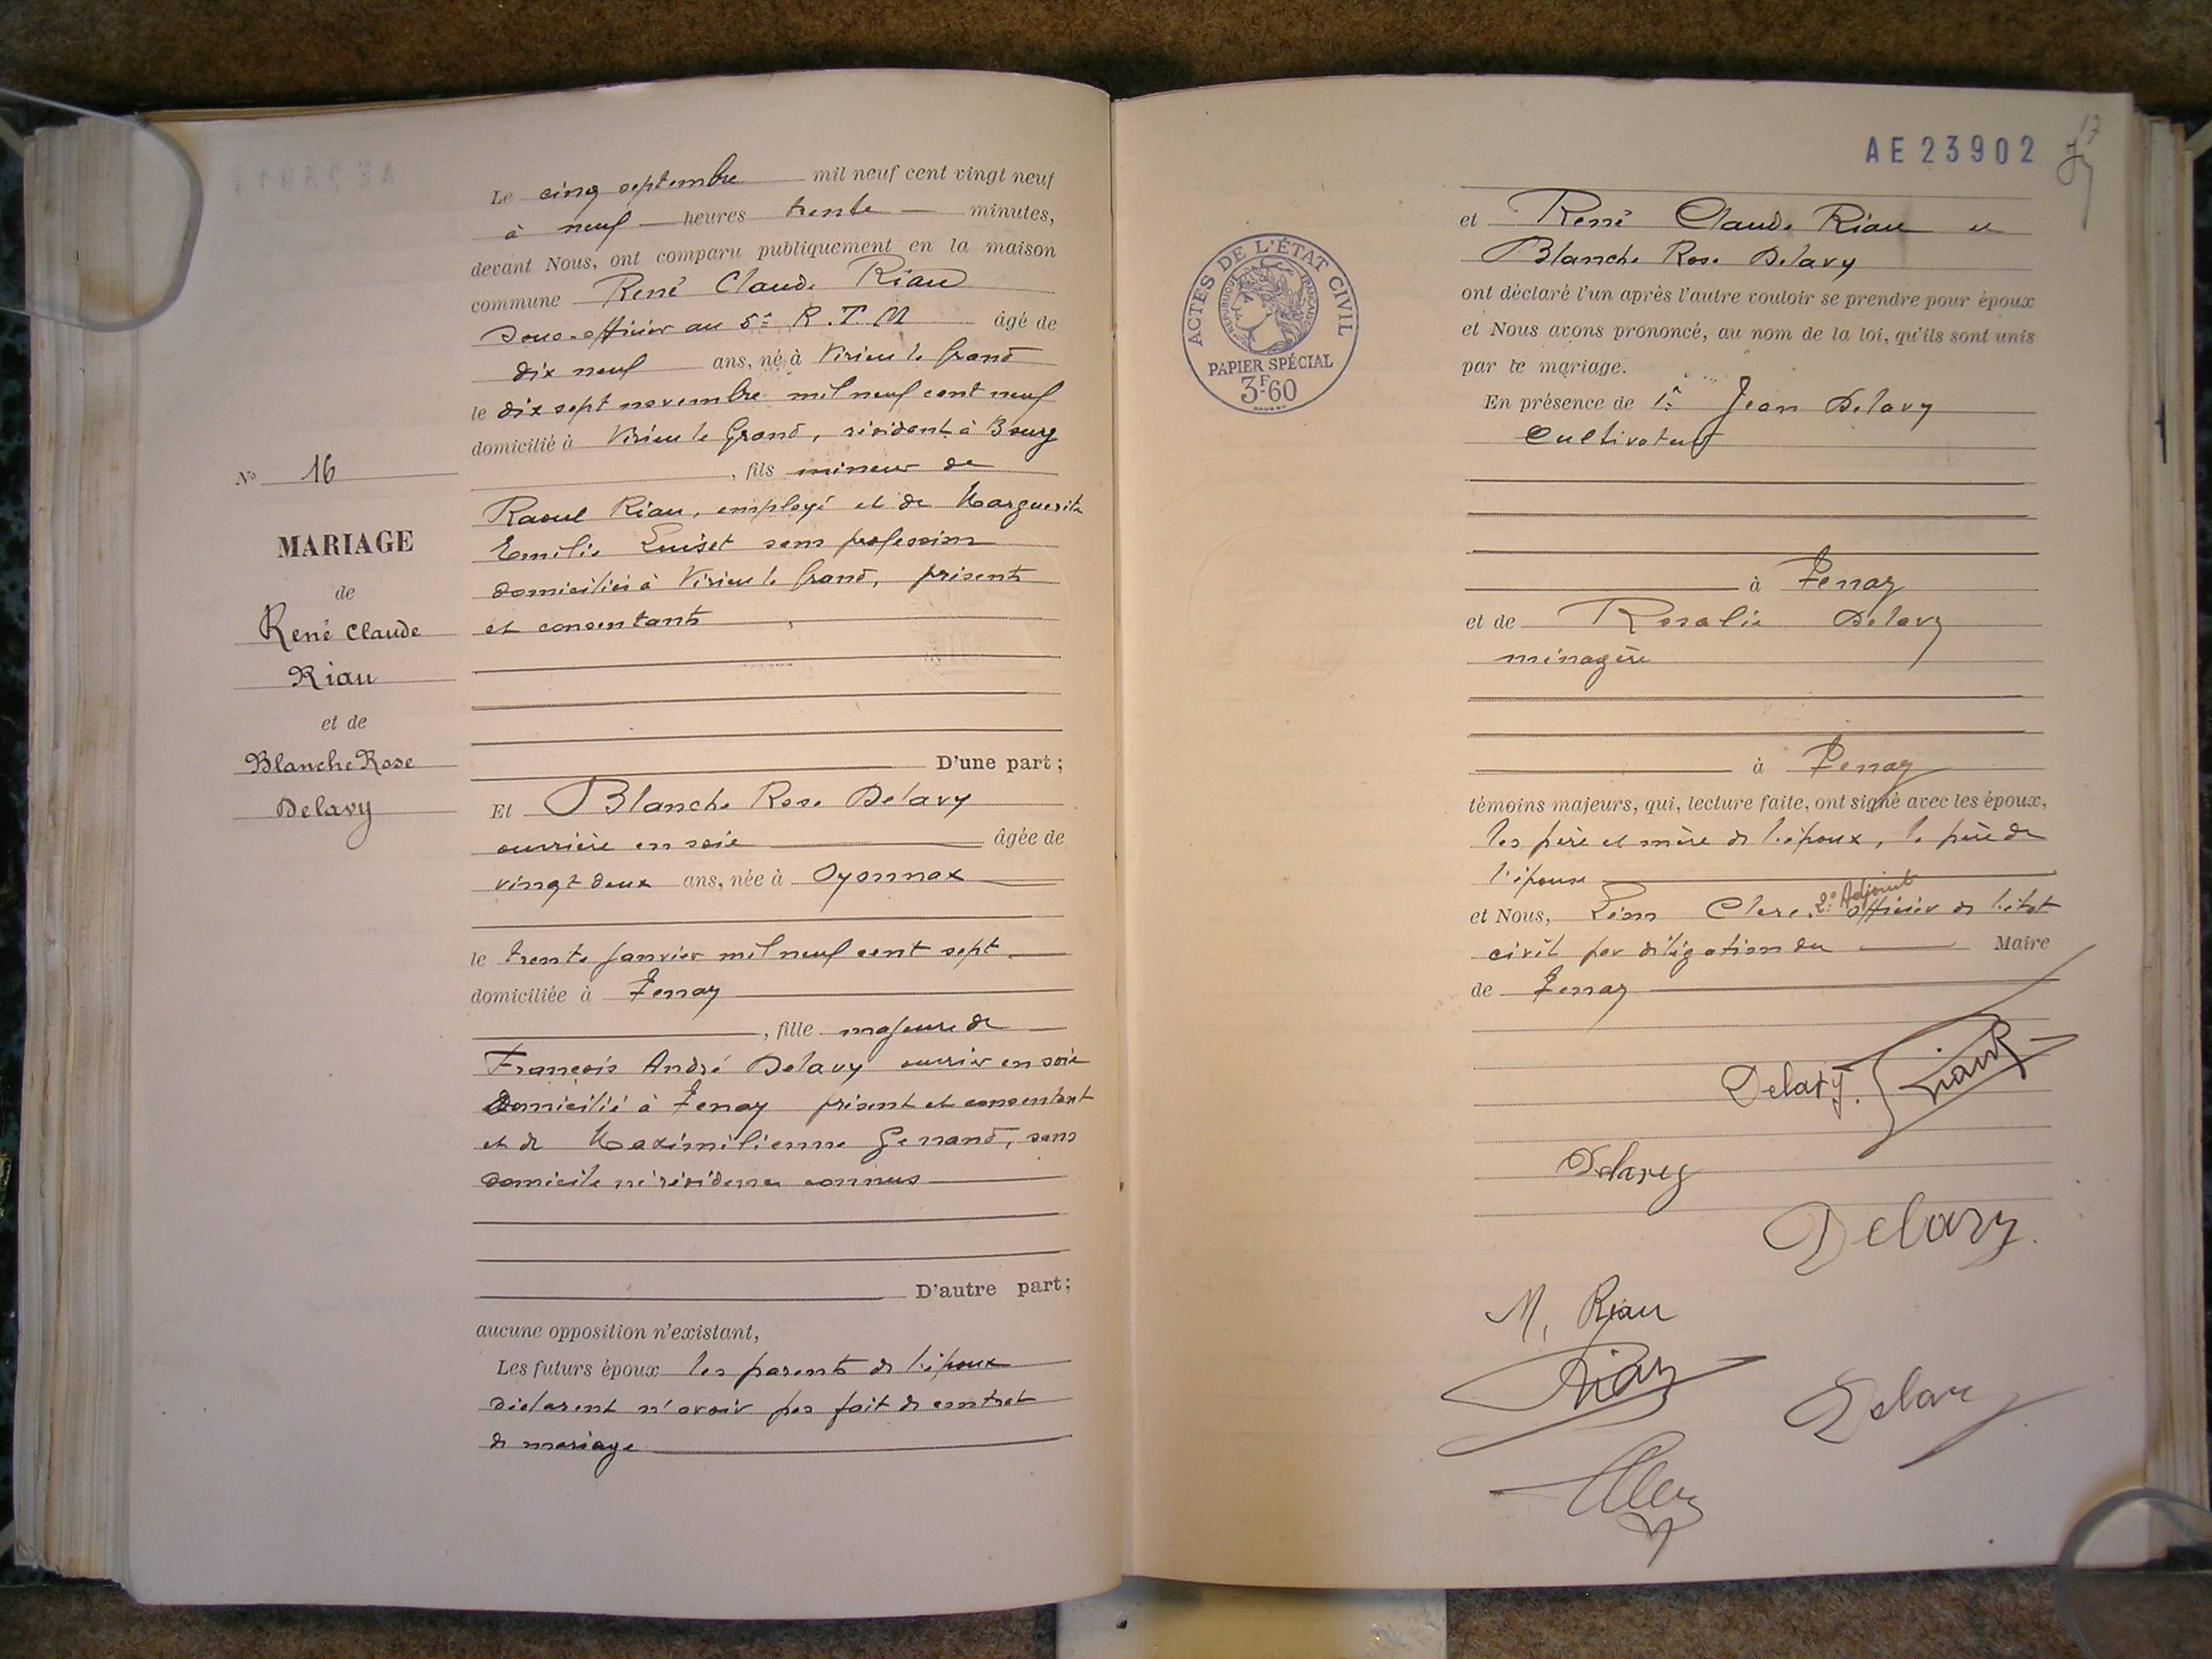 Le cinq septembre mil neuf cent vingt neuf
à neuf heures trente minutes,
devant Nous, ont comparu publiquement en la maison
commune René Claude Riau
sous-officier au 5e R.T.M âgé de
dix neuf ans, né à Virieu le Grand
le dix sept novembre mil neuf cent neuf
domicilié à Virieu le Grand, résidant à Bourg
, fils mineur de
Raoul Riau, employé et de Marguerite
Emilie Luiset sans profession
domiciliés à Virieu le Grand, présents
et consentants
D'une part;
Et Blanche Rose Delavy
ouvrière en soie âgée de
vingt deux ans, née à Oyonnax
le trente janvier mil neuf cent sept
domiciliée à Tenay
, fille majeure de
François André Delavy ouvrier en soie
domicilié à Tenay présent et consentant
et de Maximilienne Genand, sans
domicile ni résidence connus
D'autre part;
aucune opposition n'existant,
Les futurs époux les parents de l'époux
déclarent n'avoir pas fait de contrat
de mariage
No 16
MARIAGE
de
René Claude
Riau
et de
Blanche Rose
Delavy
AE 23902
17
ACTES DE L'ÉTAT CIVIL
RÉPUBLIQUE FRANÇAISE
PAPIER SPÉCIAL
3F60
et René Claude Riau et
Blanche Rose Delavy
ont déclaré l'un après l'autre vouloir se prendre pour époux
et Nous avons prononcé, au nom de la loi, qu'ils sont unis
par le mariage.
En présence de 1° Jean Delavy
Cultivateur
à Tenay
et de Rosalie Delavy
ménagère
à Tenay
témoins majeurs, qui, lecture faite, ont signé avec les époux,
les père et mère de l'époux, le père de
l'épouse
et Nous, Léon Clerc, 2e Adjoint officier de l'état
civil par délégation du Maire
de Tenay
Delavy. Riau R
Delavy
Delavy.
M. Riau
Riau
Delavy